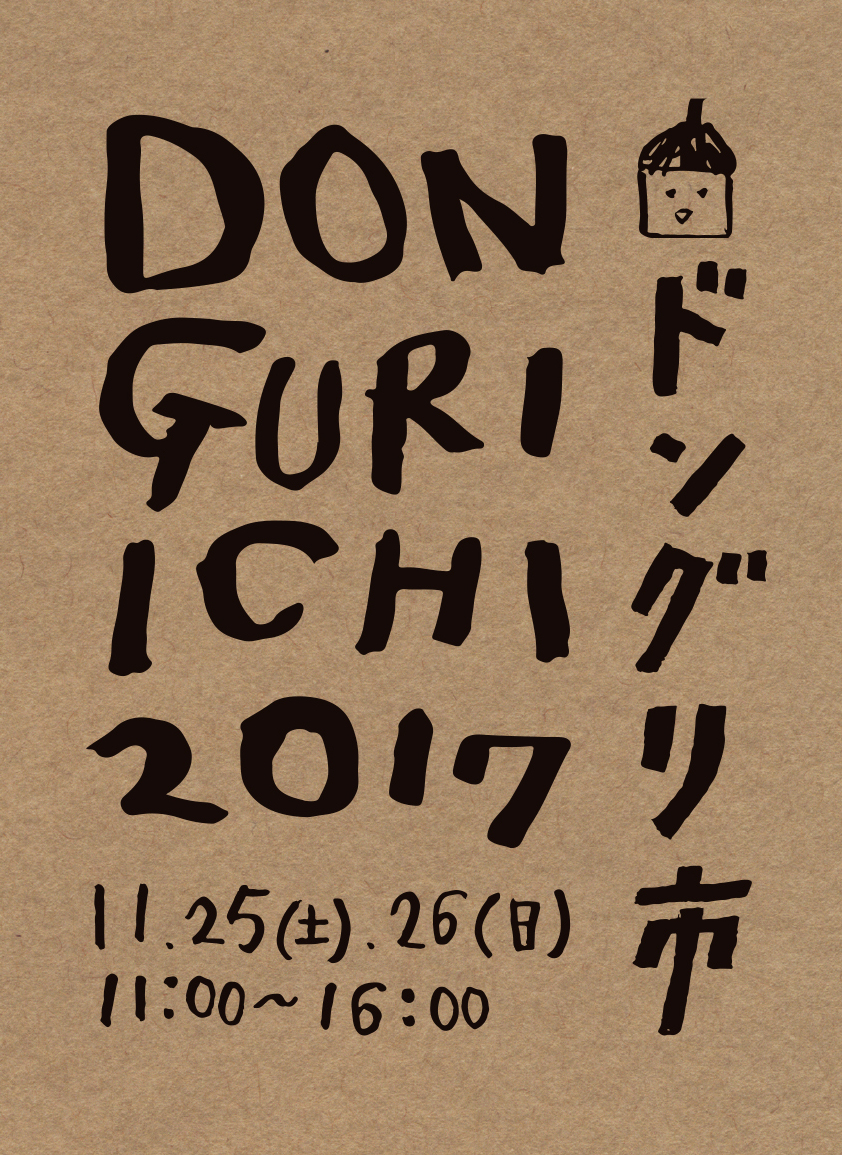 DON
GURI
ICHI
2017
11.25(土).26(日)
11:00〜16:00
ドングリ市